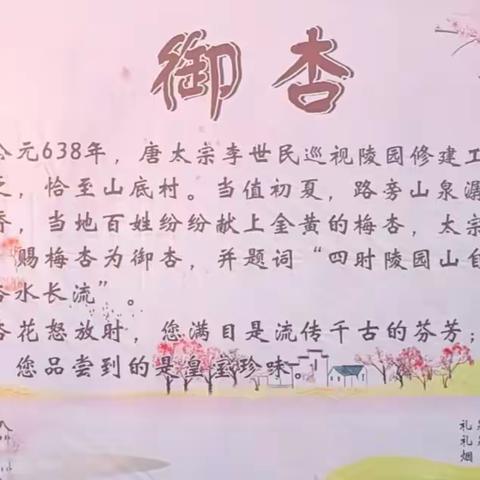 御杏
公元638年，唐太宗李世民巡视陵园修建工
之，恰至山底村。当值初夏，路旁山泉潺
香，当地百姓纷纷献上金黄的梅杏，太宗
赐梅杏为御杏，并题词“四时陵园山自
水长流”。
杏花怒放时，您满目是流传千古的芬芳；
您品尝到的是皇室珍味。
礼
礼
烟